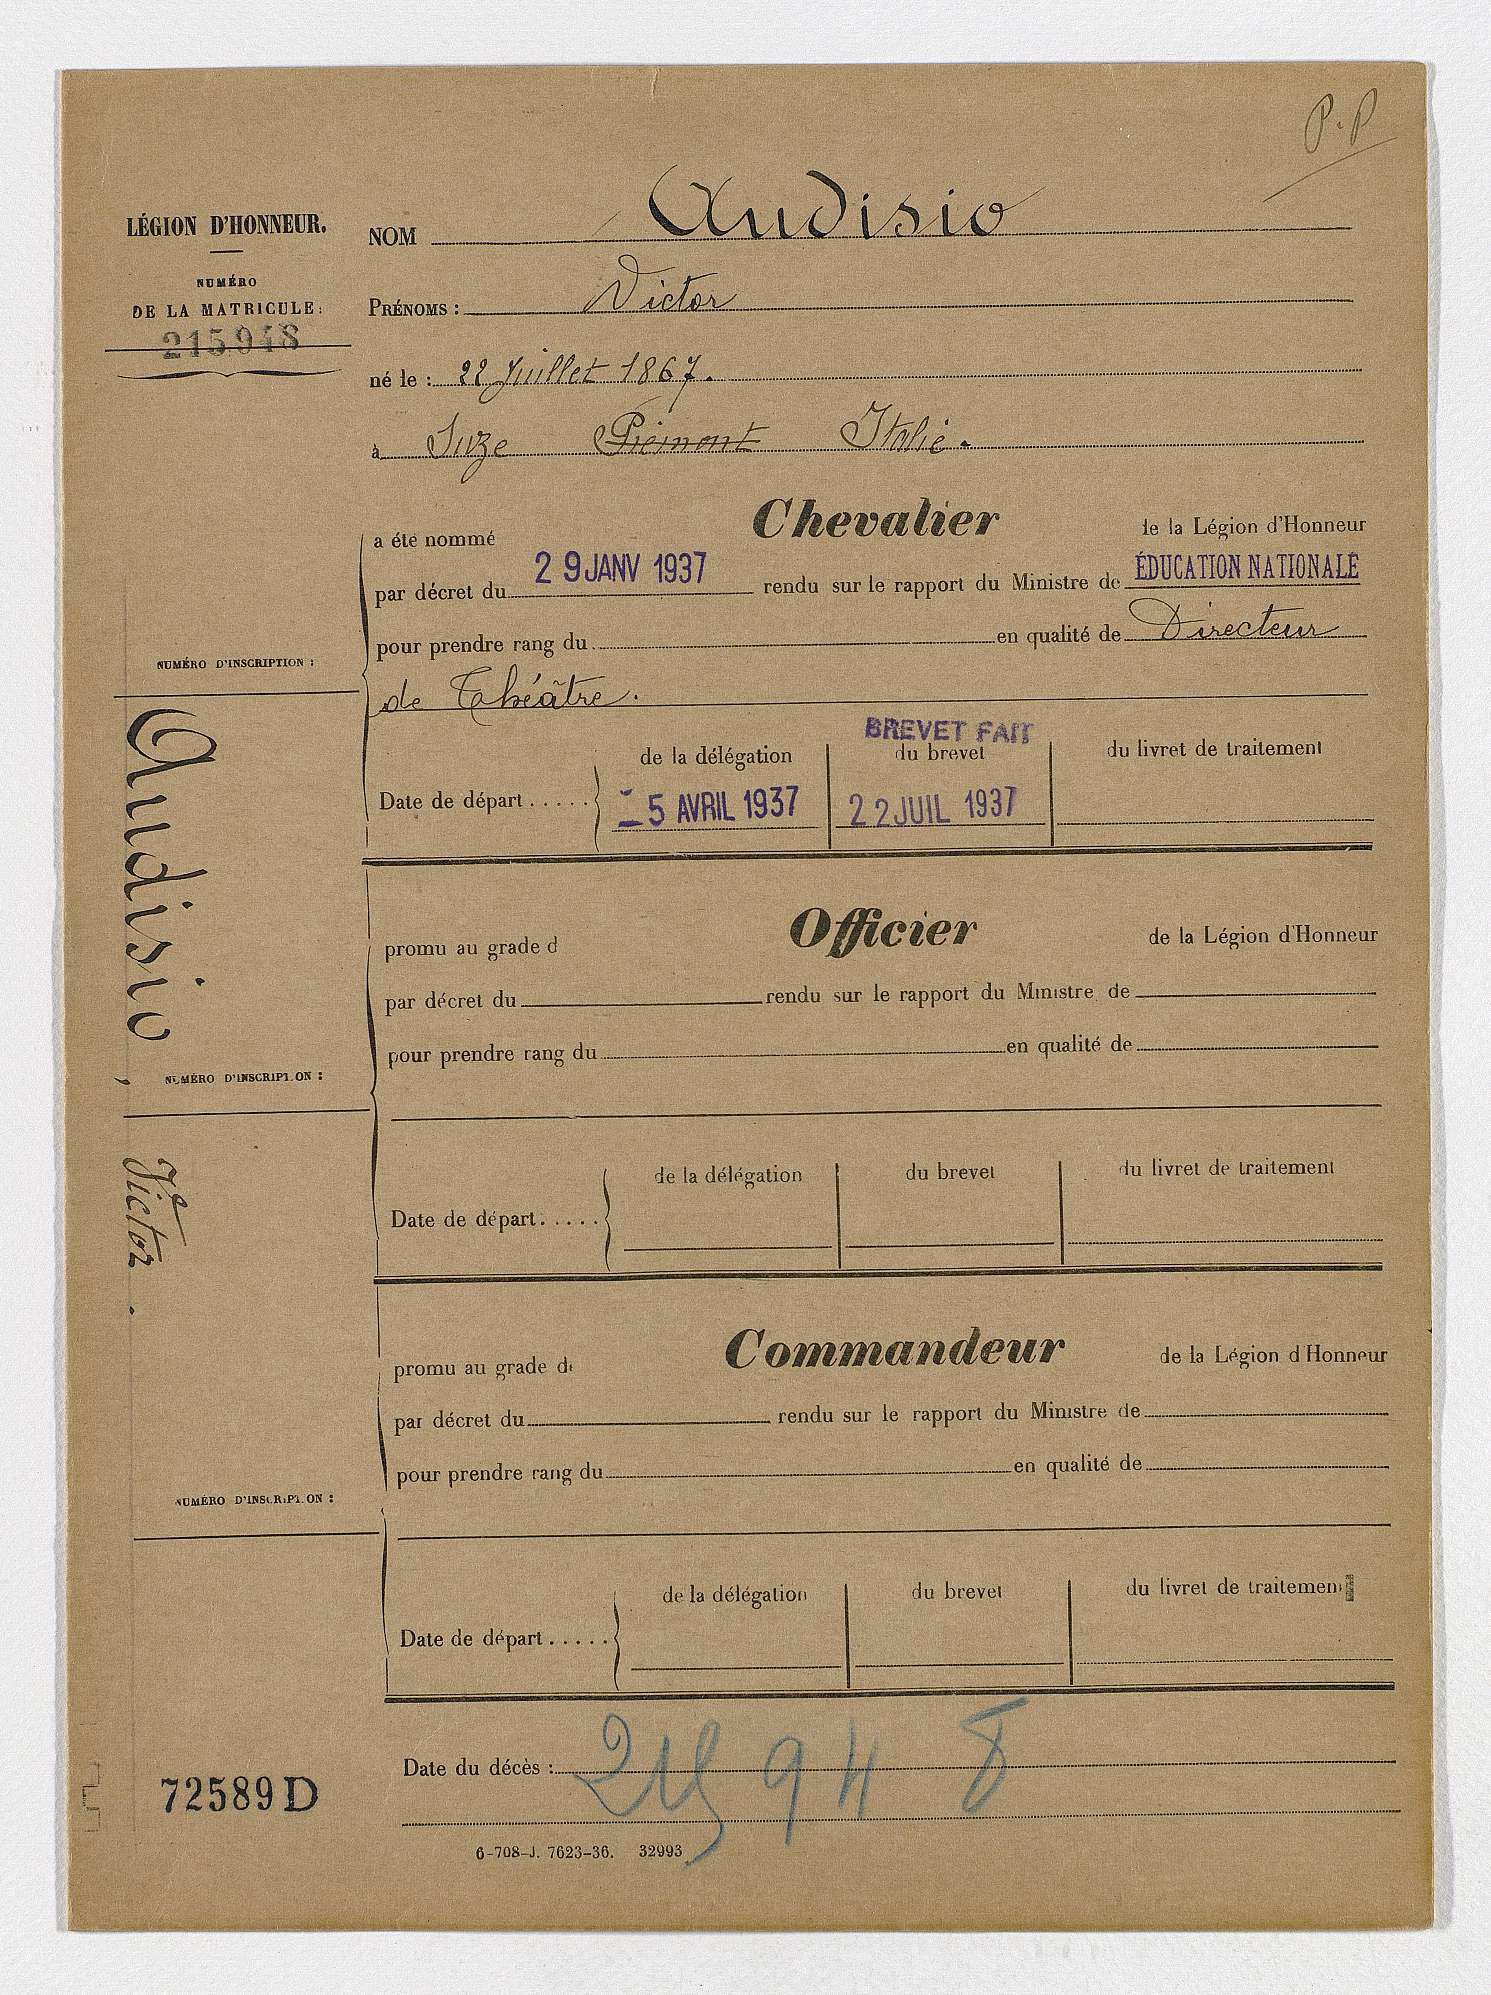 P.P
LÉGION D'HONNEUR.
NUMÉRO
DE LA MATRICULE:
215948
NOM Audisio
PRÉNOMS : Victor
né le : 22 Juillet 1867.
à Suze Piémont Italie.
a été nommé Chevalier de la Légion d'Honneur
par décret du 29 JANV 1937 rendu sur le rapport du Ministre de ÉDUCATION NATIONALE
pour prendre rang du en qualité de Directeur
de Théâtre.
NUMÉRO D'INSCRIPTION :
BREVET FAIT
de la délégation du brevet du livret de traitement
Date de départ ..... - 5 AVRIL 1937 22 JUIL 1937
Audisio, Victor.
promu au grade d Officier de la Légion d'Honneur
par décret du rendu sur le rapport du Ministre de
pour prendre rang du en qualité de
NUMÉRO D'INSCRIPTION :
de la délégation du brevet du livret de traitement
Date de départ.....
promu au grade de Commandeur de la Légion d'Honneur
par décret du rendu sur le rapport du Ministre de
pour prendre rang du en qualité de
NUMÉRO D'INSCRIPTION :
de la délégation du brevet du livret de traitement
Date de départ.....
Date du décès : 215948
72589D
6-708-J. 7623-36. 32993